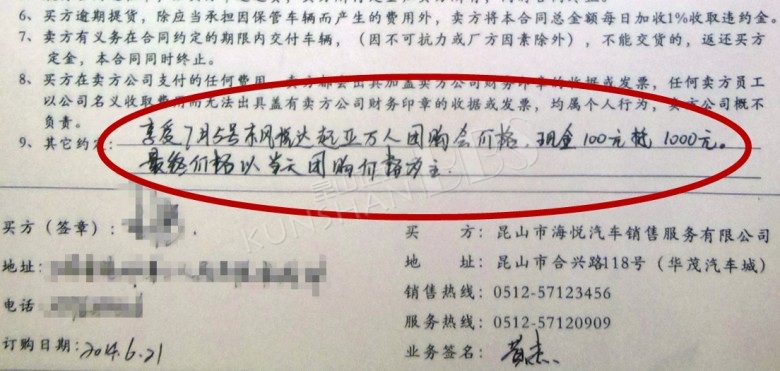 6、买方逾期提货，除应当承担因保管车辆而产生的费用外，卖方将本合同总金额每日加收1%收取违约金。
7、卖方有义务在合同约定的期限内交付车辆，（因不可抗力或厂方因素除外），不能交货的，返还买方
定金，本合同同时终止。
8、买方在卖方公司支付的任何费用，卖方都会出具加盖卖方公司财务印章的收据或发票，任何卖方员工
以公司名义收取费用而无法出具盖有卖方公司财务印章的收据或发票，均属个人行为，卖方公司概不
负责。
9、其它约定：享受7月5号东风悦达起亚万人团购会价格，现金100元抵1000元。
最终价格以当天团购价格为主.
昆山 BBS
KUNSHAN
买方（签章）：
买 方：昆山市海悦汽车销售服务有限公司
地址：
地 址：昆山市合兴路118号（华茂汽车城）
电话
销售热线：0512-57123456
服务热线：0512-57120909
订购日期：2014.6.21
业务签名：